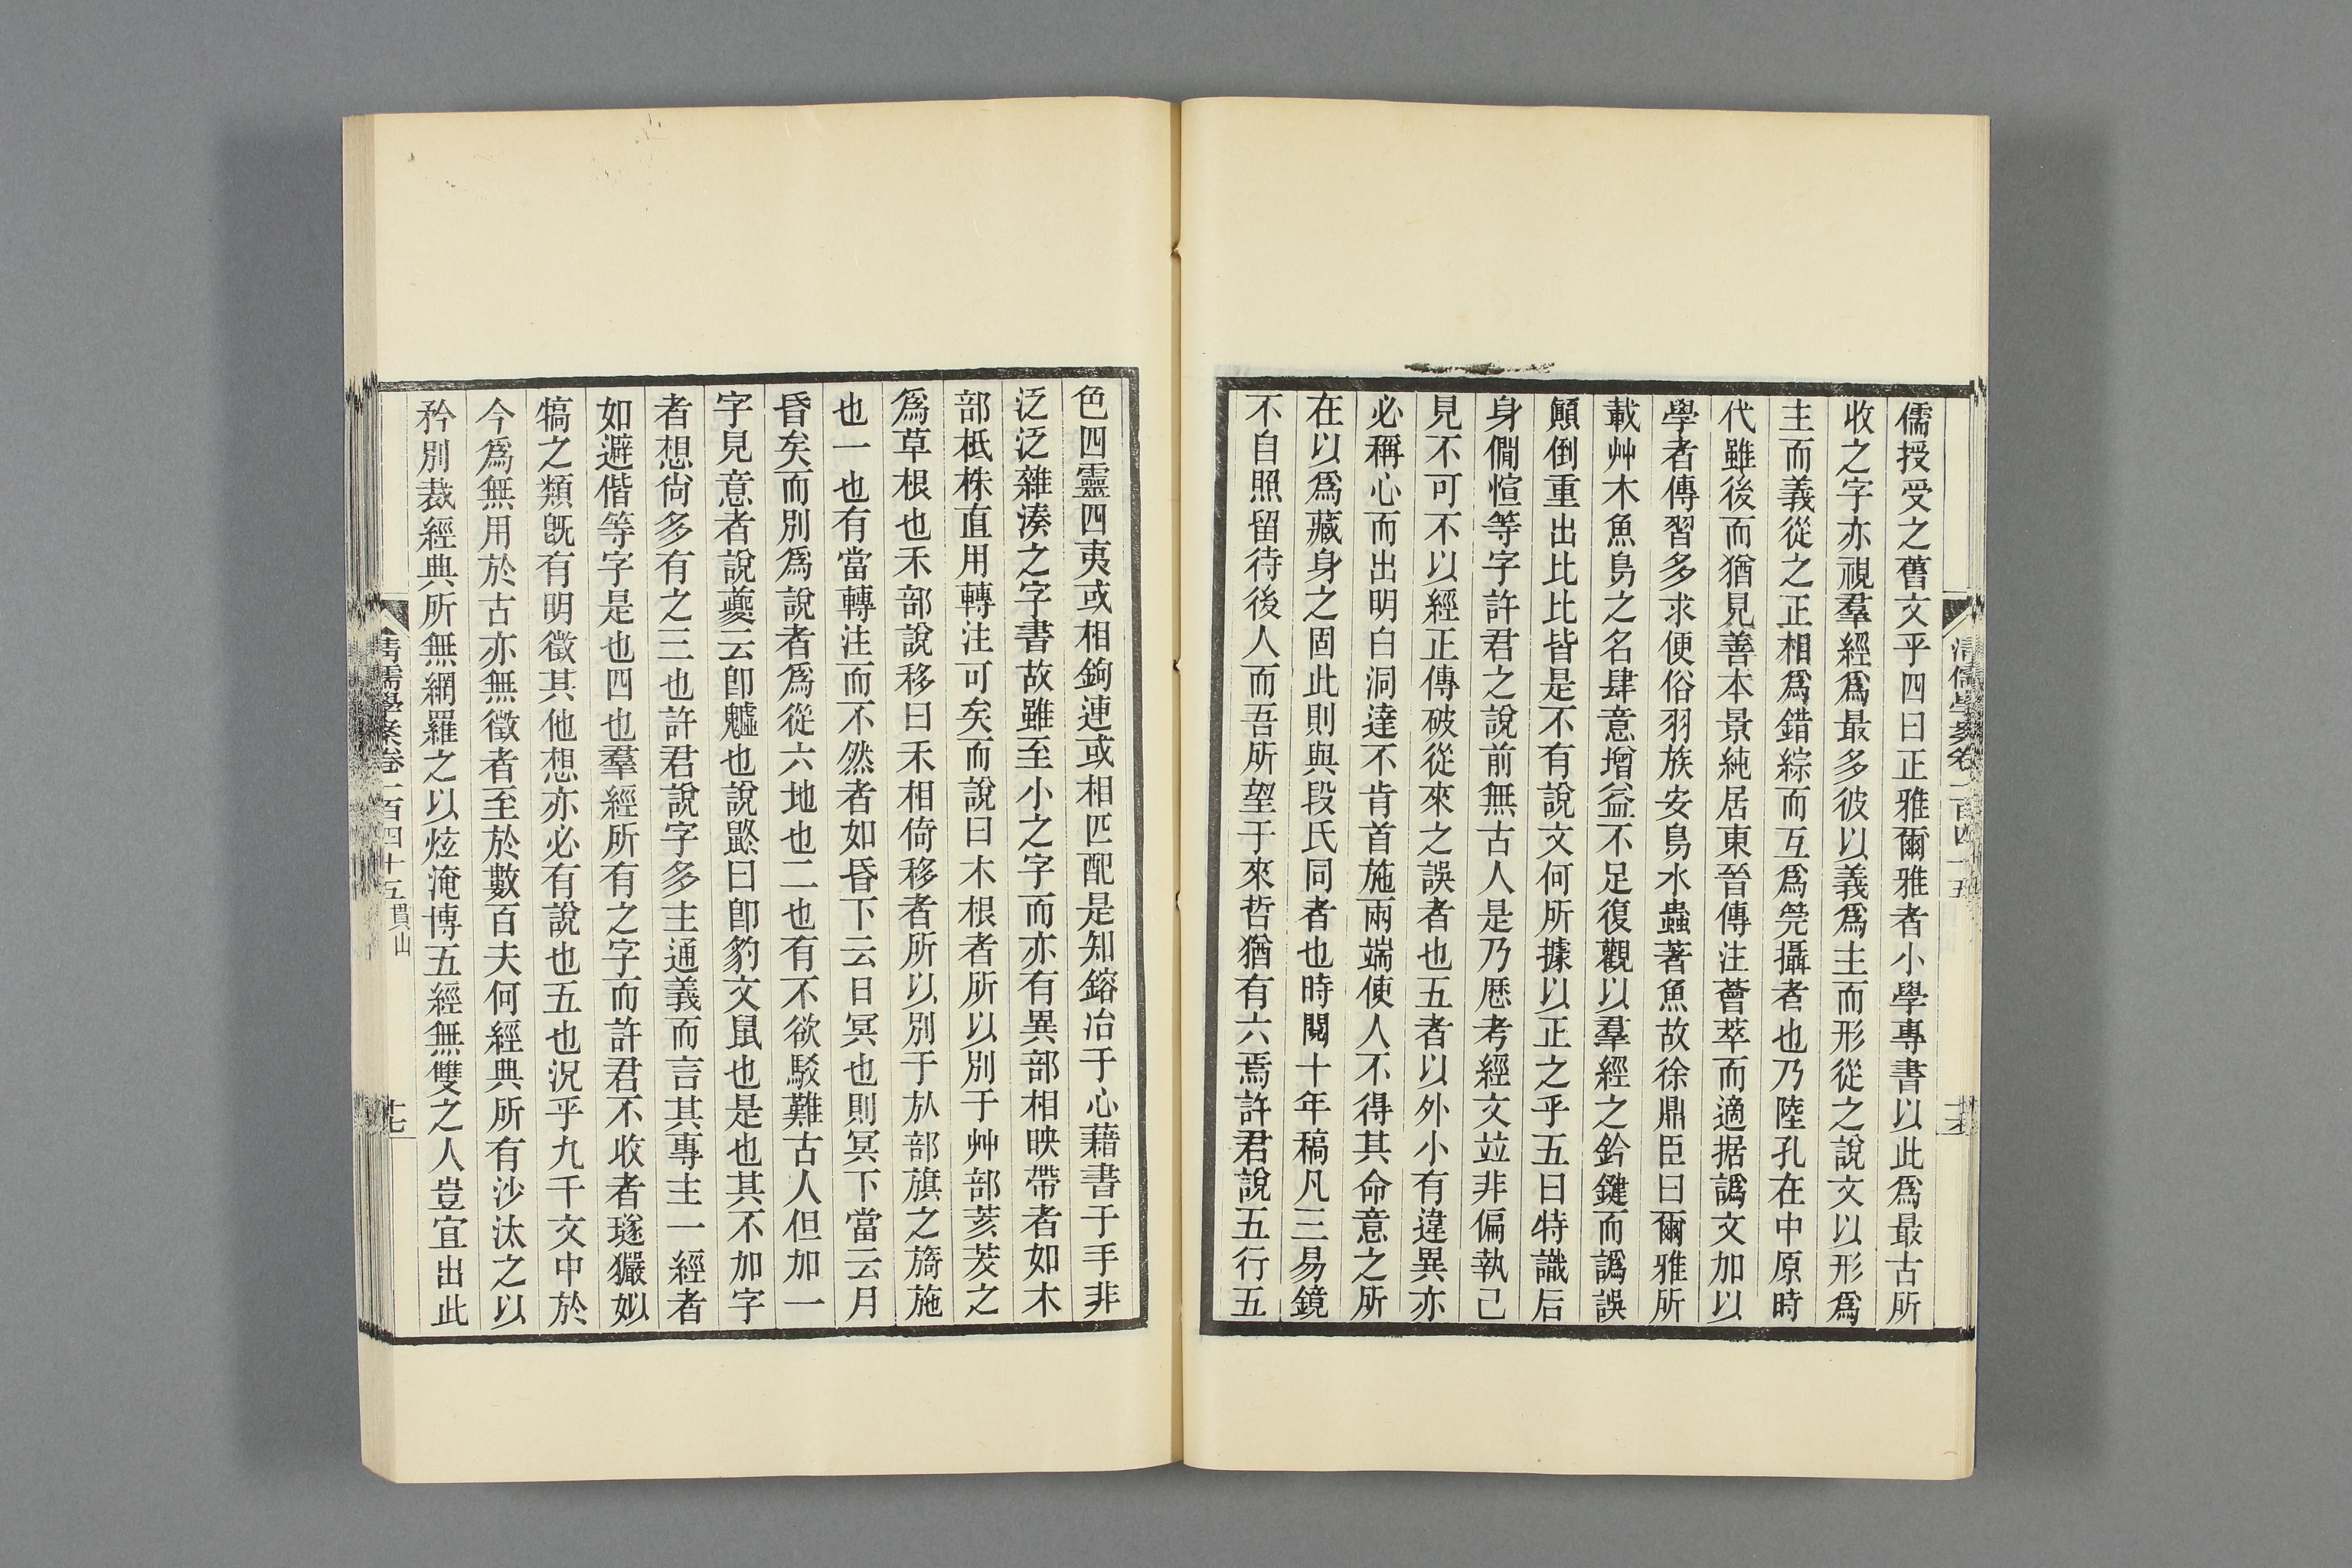 儒授受之舊文乎四曰正雅爾雅者小學專書以此爲最古所
收之字亦視羣經爲最多彼以義爲主而形從之說文以形爲
主而義從之正相爲錯綜而互爲筦攝者也乃陸孔在中原時
代雖後而猶見善本景純居東晉傳注薈萃而適据譌文加以
學者傳習多求便俗羽族安鳥水蟲著魚故徐鼎臣曰爾雅所
載艸木魚鳥之名肆意增益不足復觀以羣經之鈐鍵而譌誤
顚倒重出比比皆是不有說文何所據以正之乎五曰特識后
身僩愃等字許君之說前無古人是乃歷考經文竝非偏執己
見不可不以經正傳破從來之誤者也五者以外小有違異亦
必稱心而出明白洞達不肯首施兩端使人不得其命意之所
在以爲藏身之固此則與段氏同者也時閱十年稿凡三易鏡
不自照留待後人而吾所望于來哲猶有六焉許君說五行五
清儒學案卷一百四十五
色四靈四夷或相鉤連或相匹配是知鎔冶于心藉書于手非
泛泛雜湊之字書故雖至小之字而亦有異部相映帶者如木
部柢株直用轉注可矣而說曰木根者所以別于艸部荄茇之
爲草根也禾部說移曰禾相倚移者所以別于㫃部旗之旖施
也一也有當轉注而不然者如昏下云日冥也則冥下當云月
昏矣而別爲說者爲從六地也二也有不欲駁難古人但加一
字見意者說夔云卽魖也說鼨曰卽豹文鼠也是也其不加字
者想尙多有之三也許君說字多主通義而言其專主一經者
如避偕等字是也四也羣經所有之字而許君不收者璲玁姒
犒之類旣有明徵其他想亦必有說也五也況乎九千文中於
今爲無用於古亦無徵者至於數百夫何經典所有沙汰之以
矜別裁經典所無網羅之以炫淹博五經無雙之人豈宜出此
清儒學案卷一百四十五 貫山
十七